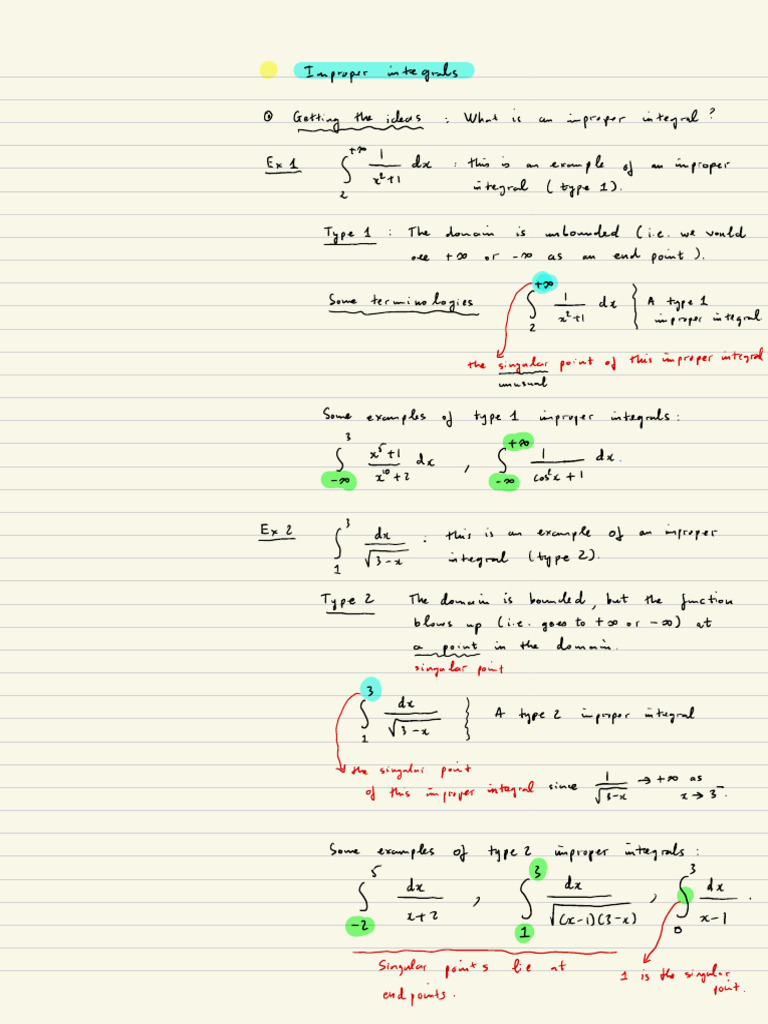 Improper integrals
Getting the ideas : What is an improper integral?
Ex 1 ∫_2^{+∞} 1/(x²+1) dx : this is an example of an improper
integral (type 1).
Type 1 : The domain is unbounded (i.e. we would
see +∞ or -∞ as an end point).
Some terminologies ∫_2^{+∞} 1/(x²+1) dx } A type 1
improper integral
the singular point of this improper integral
unusual
Some examples of type 1 improper integrals:
∫_{-∞}^3 (x⁵+1)/(x¹⁰+2) dx , ∫_{-∞}^{+∞} 1/(cos²x+1) dx.
Ex 2 ∫_1^3 dx/√(3-x) : this is an example of an improper
integral (type 2).
Type 2 The domain is bounded, but the function
blows up (i.e. goes to +∞ or -∞) at
a point in the domain.
singular point
∫_1^3 dx/√(3-x) } A type 2 improper integral
the singular point
of this improper integral since 1/√(3-x) → +∞ as
x → 3⁻.
Some examples of type 2 improper integrals:
∫_{-2}^5 dx/(x+2) , ∫_1^3 dx/√((x-1)(3-x)) , ∫_0^3 dx/(x-1) .
Singular points lie at
end points.
1 is the singular
point.